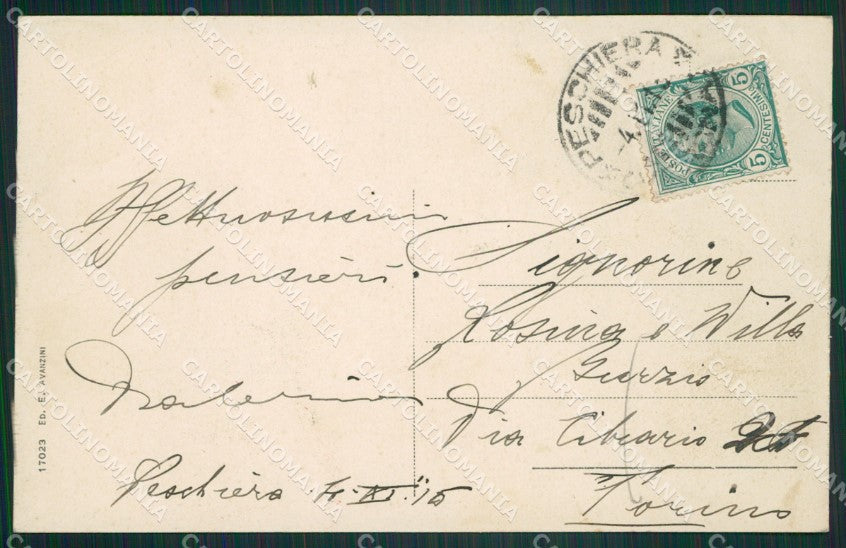 Affettuosissimi
pensieri.
Peschiera 4-XI-'15
Signorine
Rosina e Willa
Via Cibrario
Torino
17023 ED. E. AVANZINI
PESCHIERA
POSTE ITALIANE
CENTESIMI
5
5
CARTOLINOMANIA